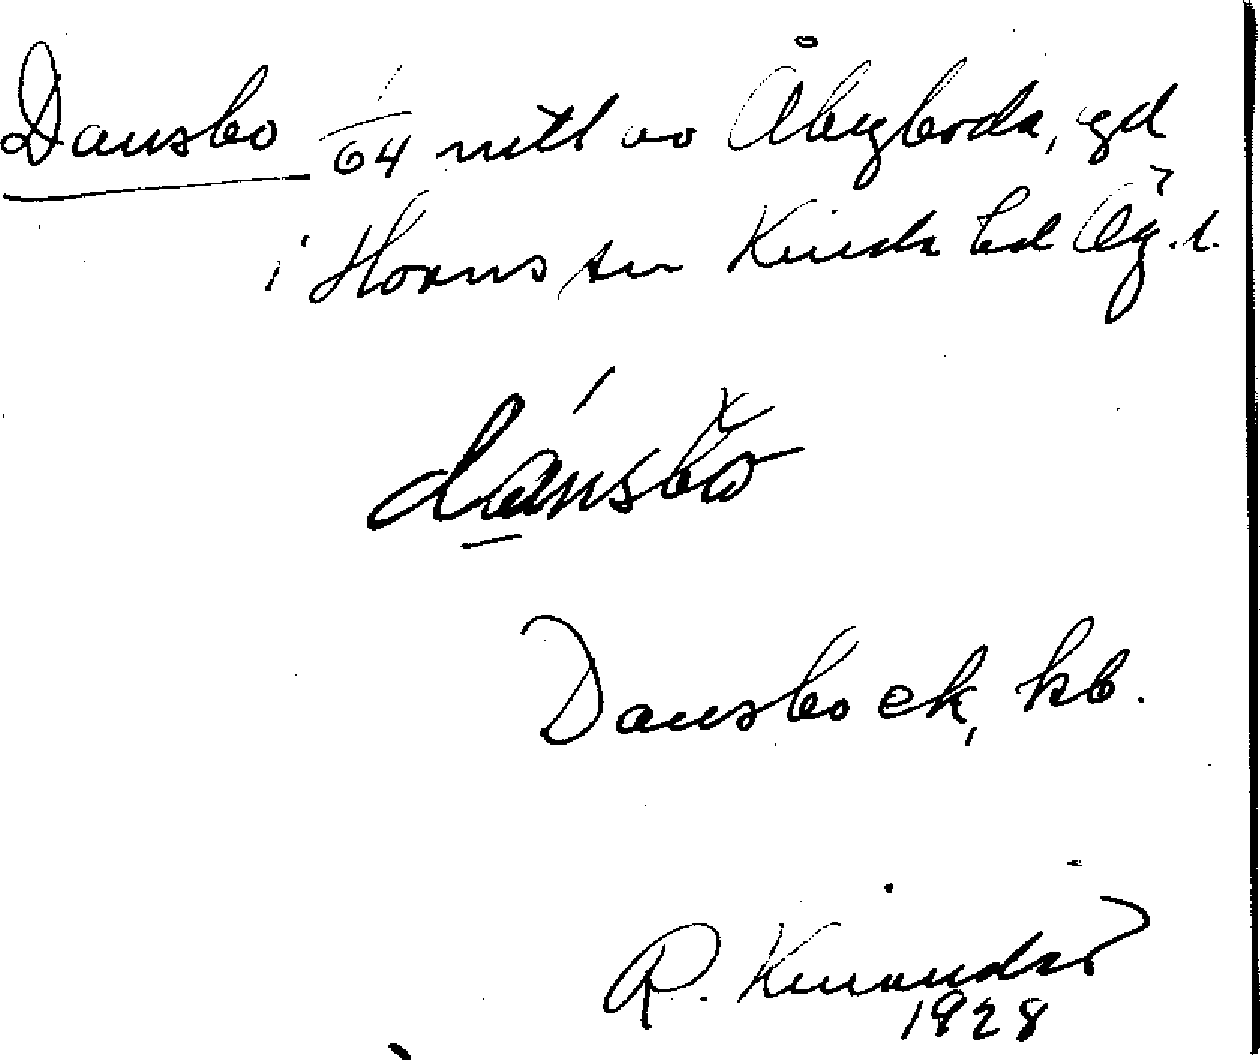 Dansbo 1/64 mtl av Åbyboda, gd
i Horns sn Kinda hd Ög.l.
dánsbo
Dansbo ek, kb.
R. Kinander
1928